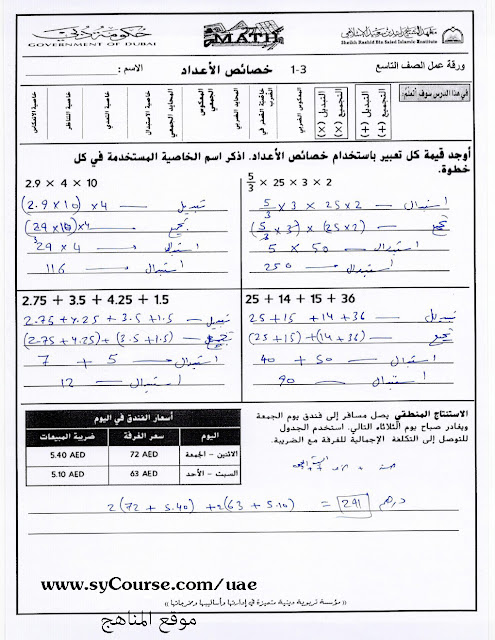 حكومة دبي
GOVERNMENT OF DUBAI
MATH
Sheikh Rashid Bin Saied Islamic Institute
ورقة عمل الصف التاسع
1-3 خصائص الأعداد
الاسم :
في هذا الدرس سوف أتعلم:
التجميع (+)
التبديل (+)
التجميع (×)
التبديل (×)
المعكوس الضربي
خاصية الضرب في
المحايد الضربي
المعكوس الجمعي
المحايد الجمعي
خاصية الاستبدال
خاصية التعدي
خاصية التناظر
خاصية الانعكاس
أوجد قيمة كل تعبير باستخدام خصائص الأعداد. اذكر اسم الخاصية المستخدمة في كل
خطوة.
2.9 × 4 × 10
(2.9 × 10) × 4 — تبديل
(29 × 10) × 4 — تجميع
29 × 4 — استبدال
116 — استبدال
5/3 × 25 × 3 × 2
5/3 × 3 × 25 × 2 — استبدال
(5/3 × 3) × (25 × 2) — تجميع
5 × 50 — استبدال
250 — استبدال
2.75 + 3.5 + 4.25 + 1.5
2.75 + 4.25 + 3.5 + 1.5 — تبديل
(2.75 + 4.25) + (3.5 + 1.5) — تجميع
7 + 5 — استبدال
12 — استبدال
25 + 14 + 15 + 36
25 + 15 + 14 + 36 — تبديل
(25 + 15) + (14 + 36) — تجميع
40 + 50 — استبدال
90 — استبدال
الاستنتاج المنطقي يصل مسافر إلى فندق يوم الجمعة
ويغادر صباح يوم الثلاثاء التالي. استخدم الجدول
للتوصل إلى التكلفة الإجمالية للغرفة مع الضريبة.
أسعار الفندق في اليوم
اليوم سعر الغرفة ضريبة المبيعات
الاثنين - الجمعة 72 AED 5.40 AED
السبت - الأحد 63 AED 5.10 AED
2(72 + 5.40) + 2(63 + 5.10) = 291 درهم
www.syCourse.com/uae
(( مؤسسة تربوية دينية متميزة في إدارتها وأساليبها ومخرجاتها ))
موقع المناهج